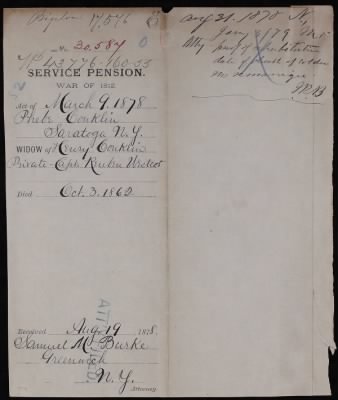 Bigelow 17,576
No. 20.587
43776-160-55
SERVICE PENSION.
WAR OF 1812
Act of March 9. 1878
Phebe Conklin
Saratoga N.Y.
WIDOW of Henry Conklin
Private - Capt. Reuben
Died Oct. 3. 1862
Received Aug. 19 1878.
Samuel M. Burke
Greenwich
N.Y.
Attorney.
Aug 31. 1878 N.
Jany 2/79
Atty proof of
date of death of soldier